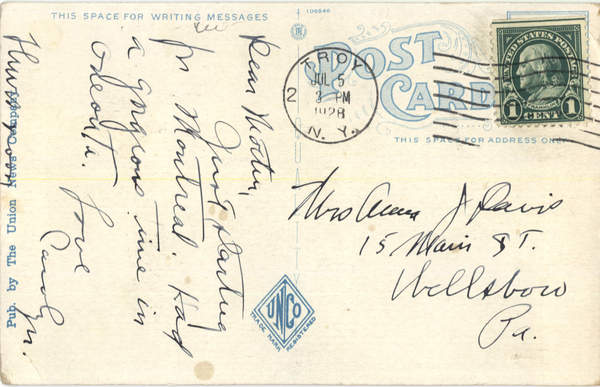 THIS SPACE FOR WRITING MESSAGES
106646
POST
CARD
THIS SPACE FOR ADDRESS ONLY
TROY
JUL 5
2 3 PM
1928
N. Y.
UNITED STATES POSTAGE
1 CENT 1
Dear Mother,
Just starting
for Montreal. Had
a gorgeous time in
Oneonta. Love
Carolyn.
Mrs Anna J Davis
15 Main ST.
Wellsboro
Pa.
Pub. by The Union News Company
UNCO
TRADE MARK REGISTERED